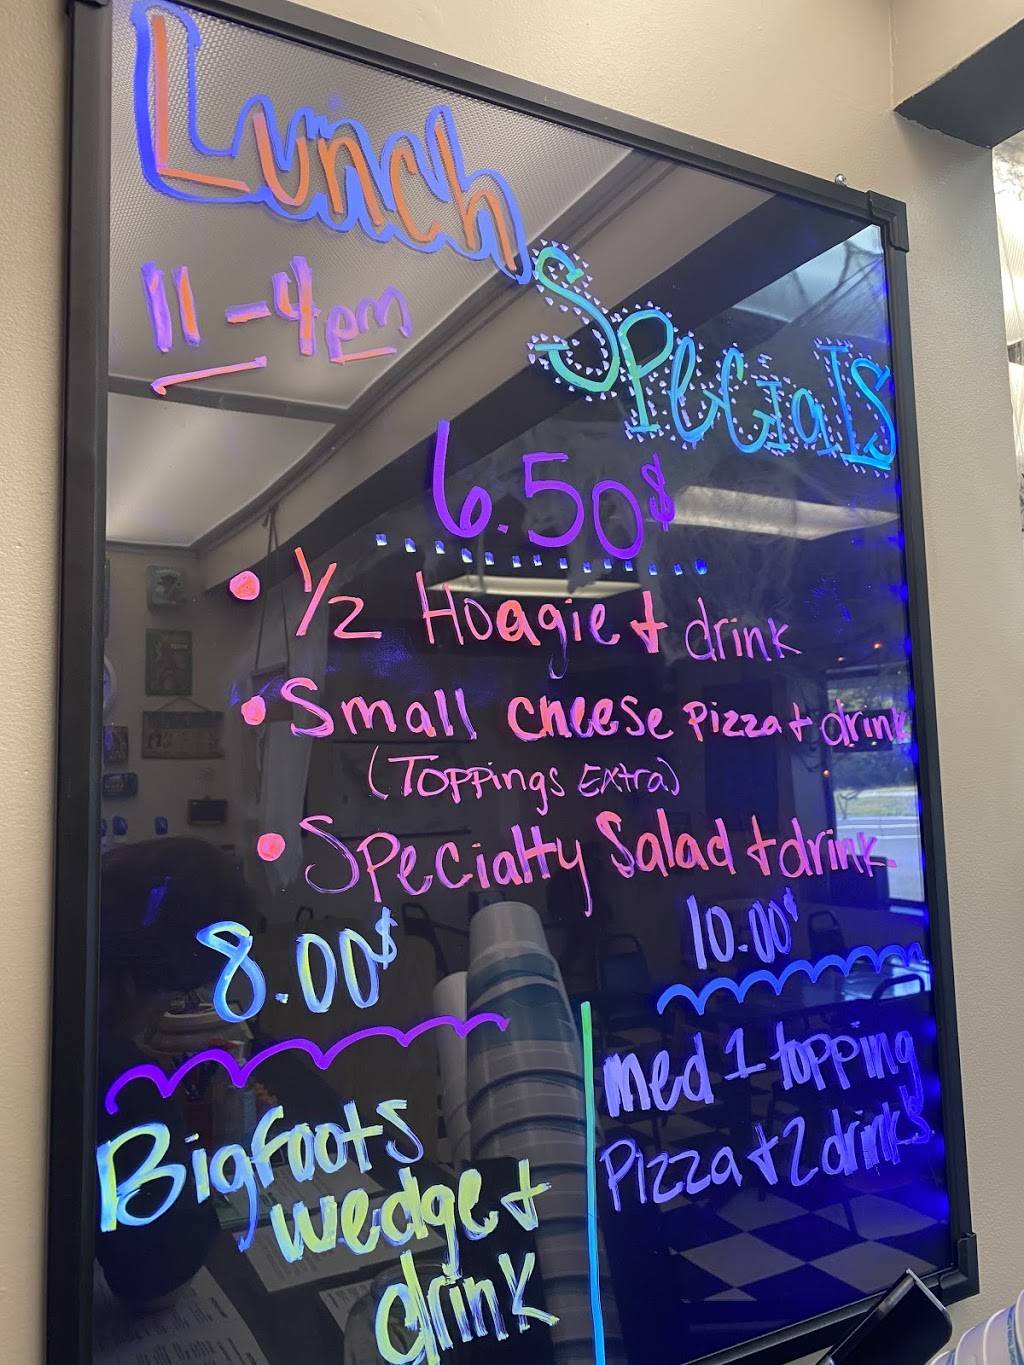 Lunch
Specials
11-4pm
6.50$
• 1/2 Hoagie + drink
• Small cheese pizza + drink
(Toppings Extra)
• Specialty Salad + drink
8.00$
Bigfoots
wedge +
drink
10.00$
med 1 topping
Pizza + 2 drinks